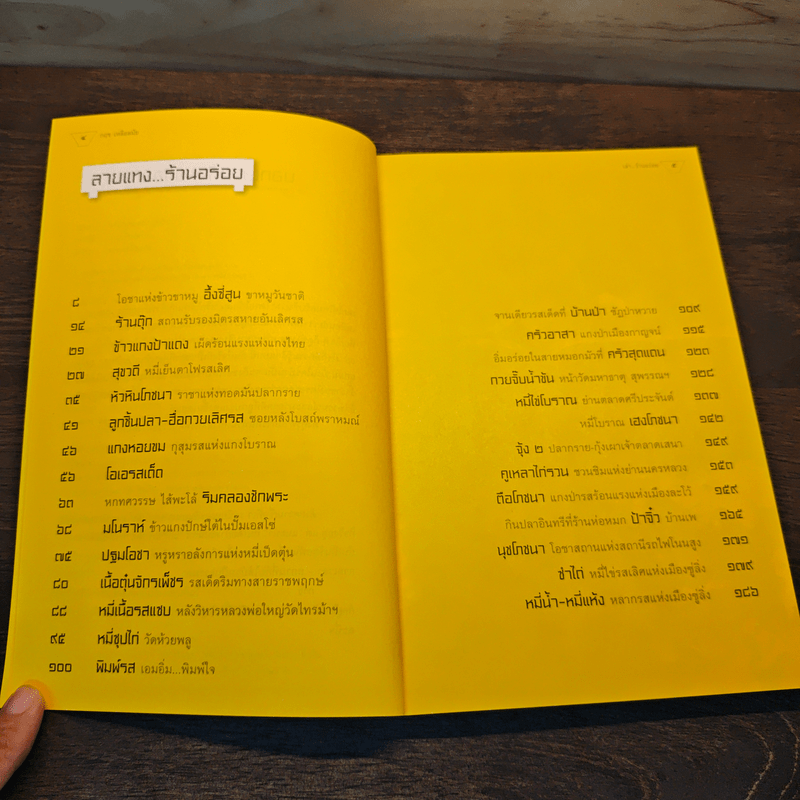 ๔
ลายแทง...ร้านอร่อย
๘ โอชาแห่งข้าวขาหมู ฮั้งซี่สูน ขาหมูวันชาติ
๑๔ ร้านตุ๊ก สถานรับรองมิตรสหายอันเลิศรส
๒๑ ข้าวแกงป้าแดง เผ็ดร้อนแรงแห่งแกงไทย
๒๗ สุขวดี หมี่เย็นตาโฟรสเลิศ
๓๕ หัวหินโภชนา ราชาแห่งทอดมันปลากราย
๔๑ ลูกชิ้นปลา-ฮื่อกวยเลิศรส ซอยหลังโบสถ์พราหมณ์
๔๖ แกงหอยขม กุสุมรสแห่งแกงโบราณ
๕๖ โอเอรสเด็ด
๖๓ หกทศวรรษ ไส้พะโล้ ริมคลองชักพระ
๖๘ มโนราห์ ข้าวแกงปักษ์ใต้ในปั๊มเอสโซ่
๗๕ ปฐมโอชา หรูหราอลังการแห่งหมี่เป็ดตุ๋น
๘๐ เนื้อตุ๋นจักรเพ็ชร รสเด็ดริมทางสายราชพฤกษ์
๘๘ หมี่เนื้อรสแซบ หลังวิหารหลวงพ่อใหญ่วัดไทรม้าฯ
๙๕ หมี่ซุปไก่ วัดห้วยพลู
๑๐๐ พิมพ์รส เอมอิ่ม...พิมพ์ใจ
๕
จานเดียวรสเด็ดที่ บ้านป่า ชัฏป่าหวาย ๑๐๙
ครัวอาสา แกงป่าเมืองกาญจน์ ๑๑๕
อิ่มอร่อยในสายหมอกมัวที่ ครัวสุดแดน ๑๒๓
กวยจั๊บน้ำข้น หน้าวัดมหาธาตุ สุพรรณฯ ๑๒๘
หมี่ไข่โบราณ ย่านตลาดศรีประจันต์ ๑๓๗
หมี่โบราณ เฮงโภชนา ๑๔๒
จุ้ง ๒ ปลากราย-กุ้งเผาเจ้าตลาดเสนา ๑๔๙
คูเหลาไก่รวน ชวนชิมแห่งย่านนครหลวง ๑๕๓
ตือโภชนา แกงป่ารสร้อนแรงแห่งเมืองละโว้ ๑๕๙
กินปลาอินทรีที่ร้านห่อหมก ป้าจิ๋ว บ้านเพ ๑๖๕
นุชโภชนา โอชาสถานแห่งสถานีรถไฟโนนสูง ๑๗๑
ชำไก่ หมี่ไข่รสเลิศแห่งเมืองซู่ลิ่ง ๑๗๙
หมี่น้ำ-หมี่แห้ง หลากรสแห่งเมืองซู่ลิ่ง ๑๘๖